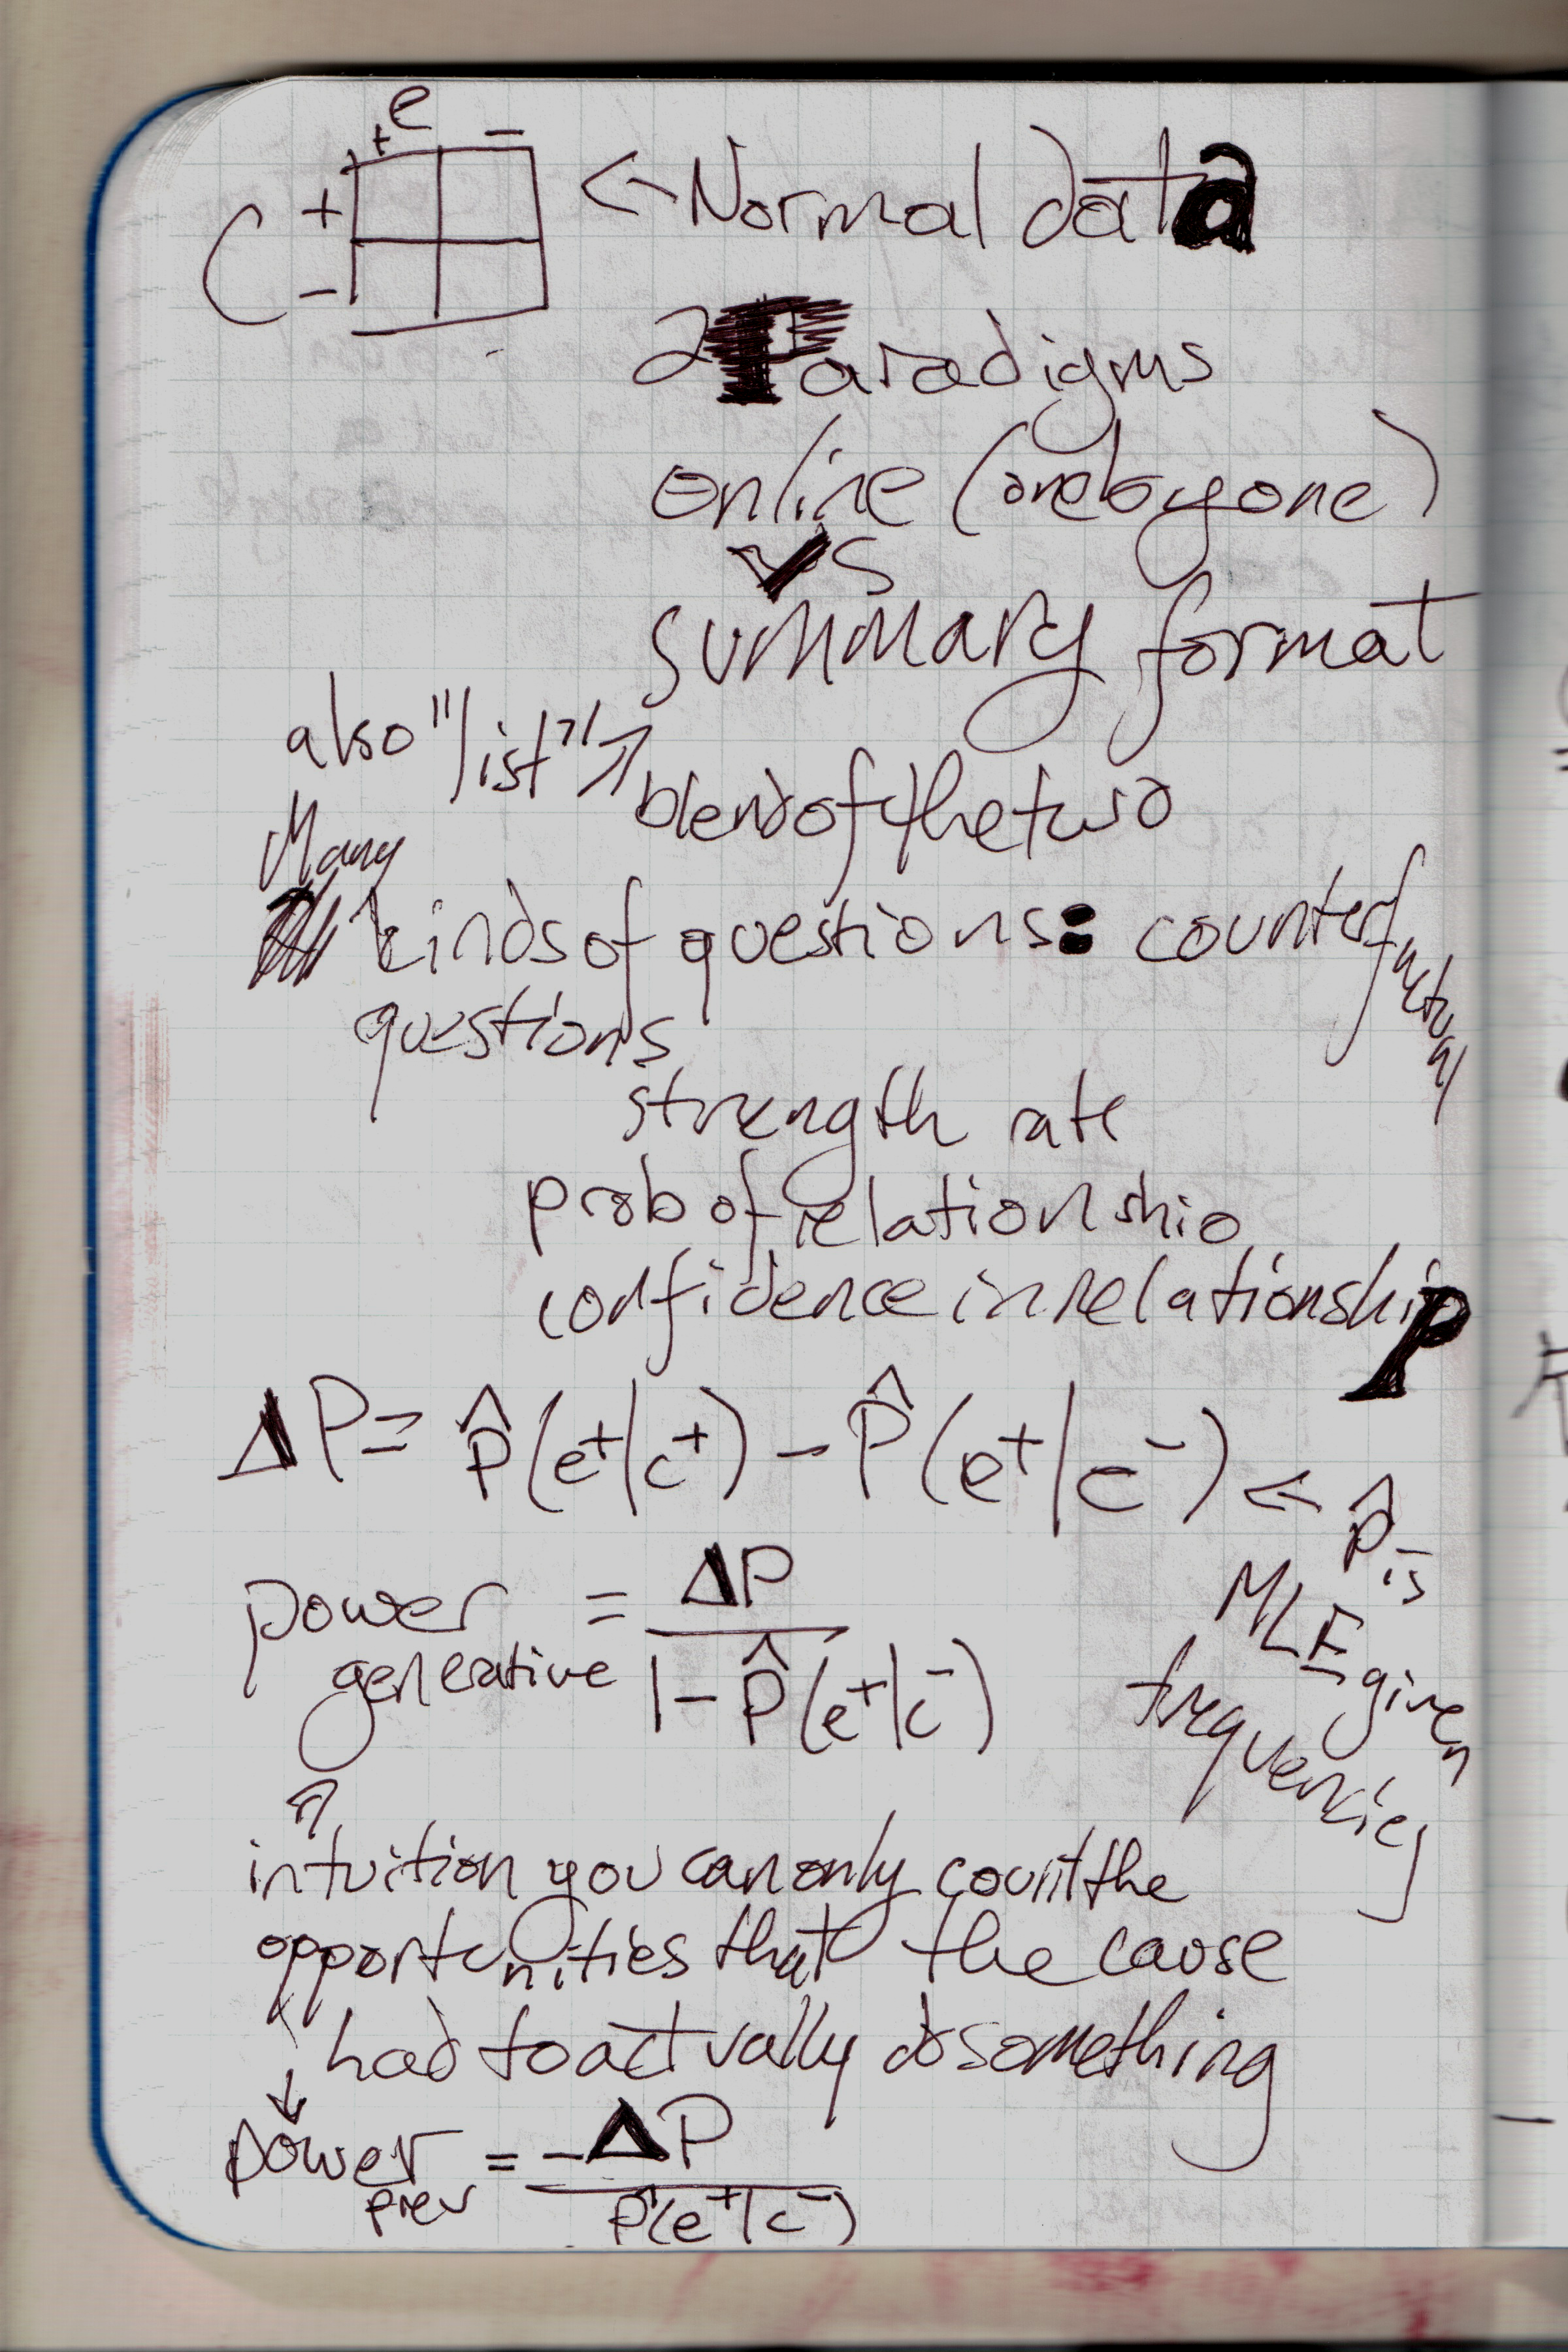 e
+ −
C + ← Normal data
−
2 Paradigms
online (one by one)
vs
summary format
also "list" ↗
blend of the two
Many
kinds of questions: counterfactual
questions
strength rate
prob of relationship
confidence in relationship
ΔP = P̂(e⁺|c⁺) − P̂(e⁺|c⁻) ← P̂ is
MLE given
frequencies
power generative = ΔP / 1 − P̂(e⁺|c⁻)
↑
intuition you can only count the
opportunities that the cause
↓ had to actually do something
power prev = −ΔP / P̂(e⁺|c⁻)